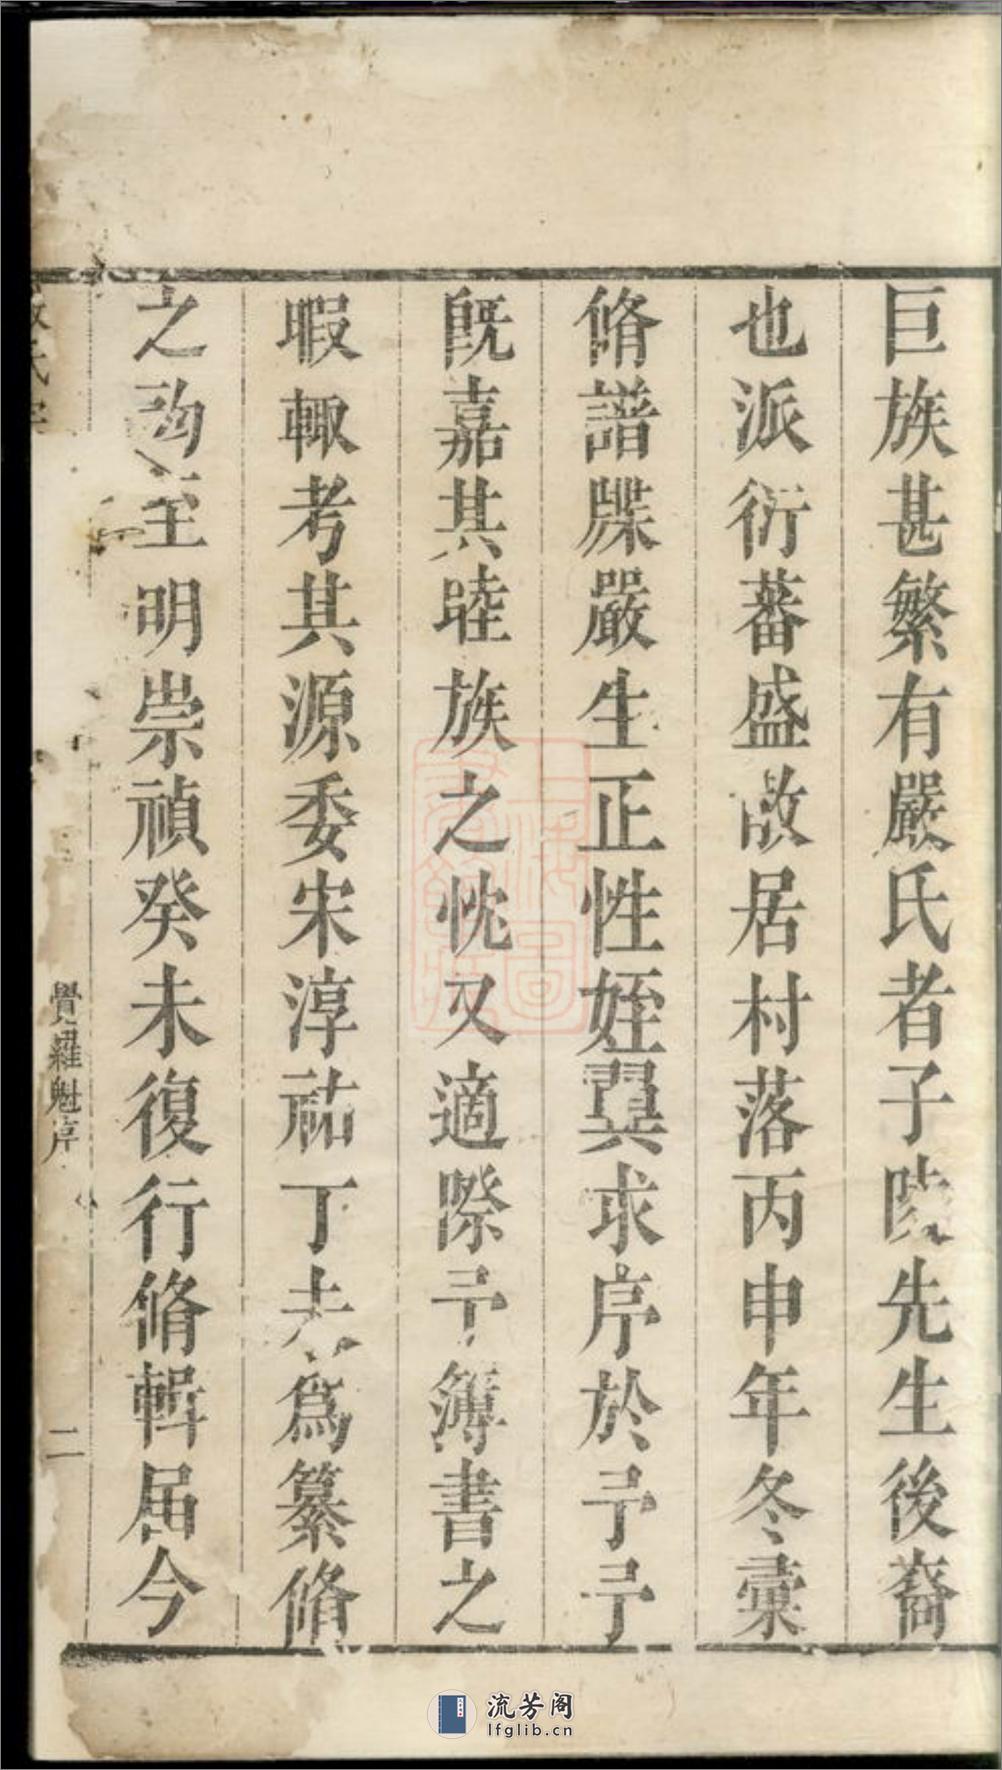 巨族甚繁有嚴氏者子陵先生後裔
也派衍蕃盛散居村落丙申年冬彙
脩譜牒嚴生正性姪巽求序於予予
旣嘉其睦族之忱又適際予簿書之
暇輒考其源委宋淳祐丁未爲纂脩
之始至明崇禎癸未復行脩輯届今
嚴氏宗
覺羅魁序
二
流芳阁
lfglib.cn